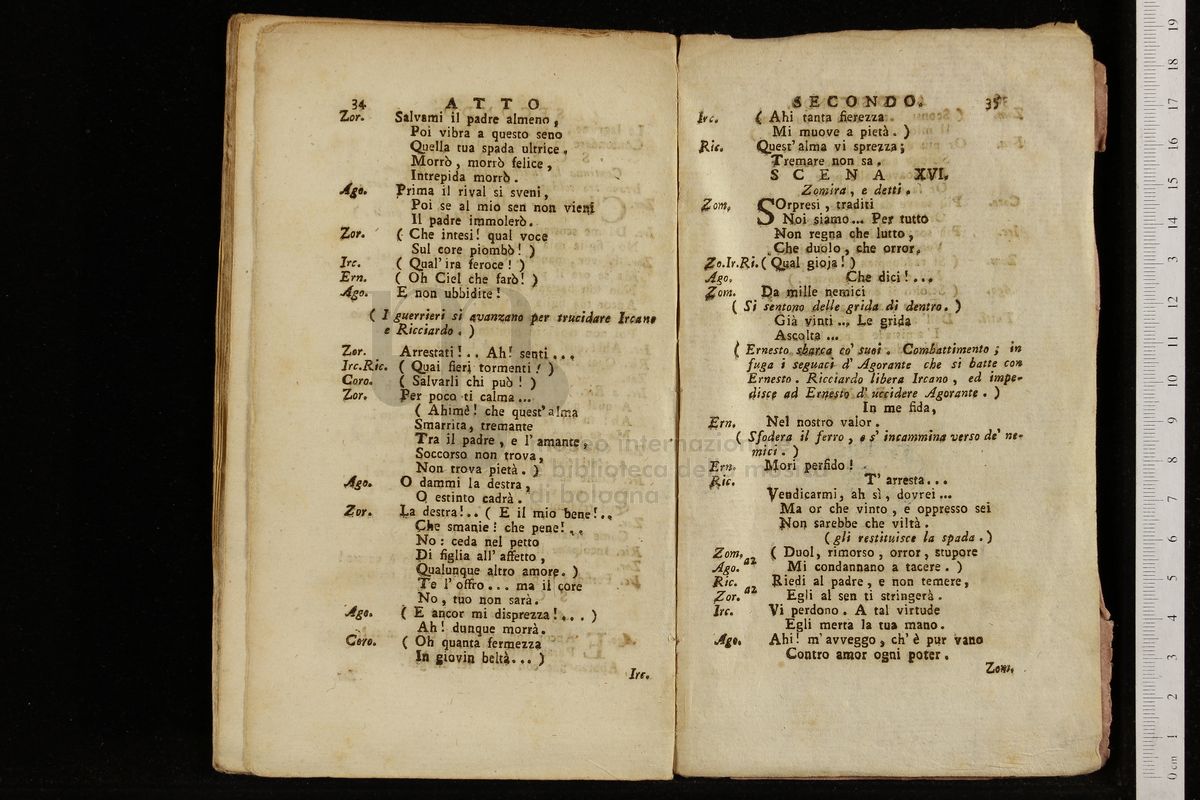 34 ATTO
Zor. Salvami il padre almeno,
Poi vibra a questo seno
Quella tua spada ultrice.
Morrò, morrò felice,
Intrepida morrò.
Ago. Prima il rival si sveni,
Poi se al mio sen non vieni
Il padre immolerò.
Zor. (Che intesi! qual voce
Sul core piombò!)
Irc. (Qual' ira feroce!)
Ern. (Oh Ciel che farò!)
Ago. E non ubbidite!
(I guerrieri si avanzano per trucidare Ircano
e Ricciardo.)
Zor. Arrestati!.. Ah! senti...
Irc.Ric. (Quai fieri tormenti!)
Coro. (Salvarli chi può!)
Zor. Per poco ti calma...
(Ahimè! che quest' alma
Smarrita, tremante
Tra il padre, e l' amante,
Soccorso non trova,
Non trova pietà.)
Ago. O dammi la destra,
O estinto cadrà.
Zor. La destra!.. (E il mio bene!..
Che smanie! che pene!..
No: ceda nel petto
Di figlia all' affetto,
Qualunque altro amore.)
Te l' offro... ma il core
No, tuo non sarà.
Ago. (E ancor mi disprezza!...)
Ah! dunque morrà.
Coro. (Oh quanta fermezza
In giovin beltà...)
Irc.
SECONDO. 35
Irc. (Ahi tanta fierezza
Mi muove a pietà.)
Ric. Quest' alma vi sprezza;
Tremare non sa.
SCENA XVI.
Zomira, e detti.
Zom. SOrpresi, traditi
Noi siamo... Per tutto
Non regna che lutto,
Che duolo, che orror.
Zo.Ir.Ri. (Qual gioja!)
Ago. Che dici!...
Zom. Da mille nemici
(Si sentono delle grida di dentro.)
Già vinti... Le grida
Ascolta...
(Ernesto sbarca co' suoi. Combattimento; in
fuga i seguaci d' Agorante che si batte con
Ernesto. Ricciardo libera Ircano, ed impe-
disce ad Ernesto d' uccidere Agorante.)
In me fida,
Ern. Nel nostro valor.
(Sfodera il ferro, e s' incammina verso de' ne-
mici.)
Ern. Mori perfido!
Ric. T' arresta...
Vendicarmi, ah sì, dovrei...
Ma or che vinto, e oppresso sei
Non sarebbe che viltà.
(gli restituisce la spada.)
Zom. (Duol, rimorso, orror, stupore
Ago. a2 Mi condannano a tacere.)
Ric. Riedi al padre, e non temere,
Zor. a2 Egli al sen ti stringerà.
Irc. Vi perdono. A tal virtude
Egli merta la tua mano.
Ago. Ahi! m' avveggo, ch' è pur vano
Contro amor ogni poter.
Zom.
museo internazionale
e biblioteca della musica
di bologna
0 cm 1 2 3 4 5 6 7 8 9 10 11 12 13 14 15 16 17 18 19